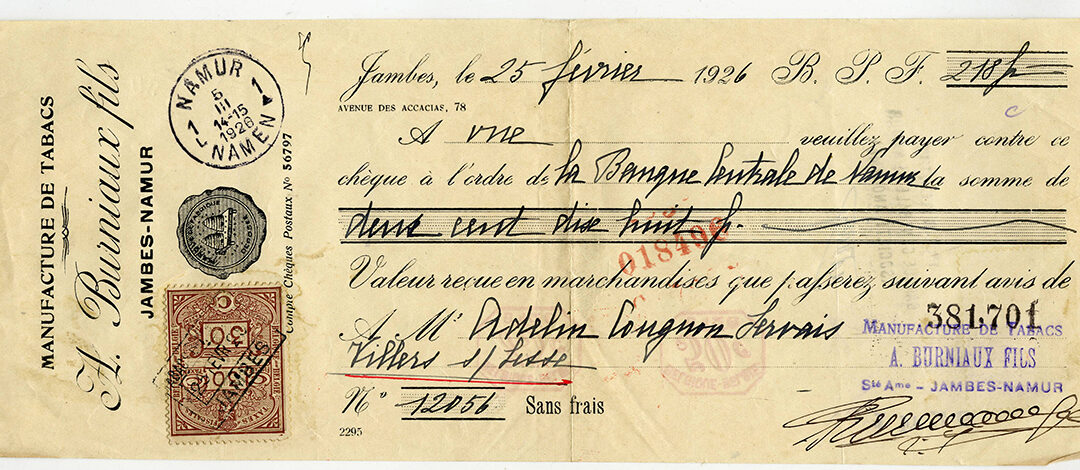 MANUFACTURE DE TABACS
A. Burniaux fils
JAMBES-NAMUR
NAMUR 1
5
III
14-15
1926
1 NAMEN
Compte Chèques Postaux No 56797
Jambes, le 25 février 1926 B. P. F. 218 f
AVENUE DES ACCACIAS, 78
A vue veuillez payer contre ce
chèque à l'ordre de la Banque Centrale de Namur la somme de
deux cent dix huit f
018496
Valeur reçue en marchandises que passerez suivant avis de
381,701
A Mr Adelin Cougnon Servais
Villers s/ Lesse
MANUFACTURE DE TABACS
A. BURNIAUX FILS
Sté Ame - JAMBES-NAMUR
No 12056 Sans frais
2295